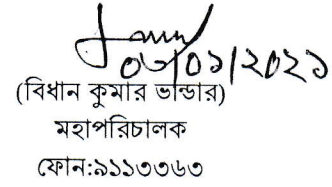 ০৬/০১/২০২১
(বিধান কুমার ভান্ডার)
মহাপরিচালক
ফোন:৯১১৩৩৬৩